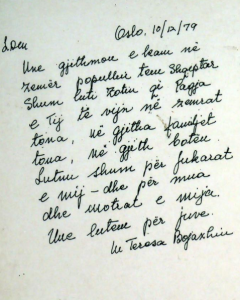 Oslo, 10/12/79
Une gjithmon e kam në
zemër popullin tem Shqiptar
Shum luti Zotin qi Paqja
e Tij të vijn në zemrat
tona, në gjitha familjet
tona, në gjith botën.
Lutnu shum për fukarat
e mij - dhe për mua
dhe motrat e mija.
Une lutem për juve.
M Teresa Bojaxhiu